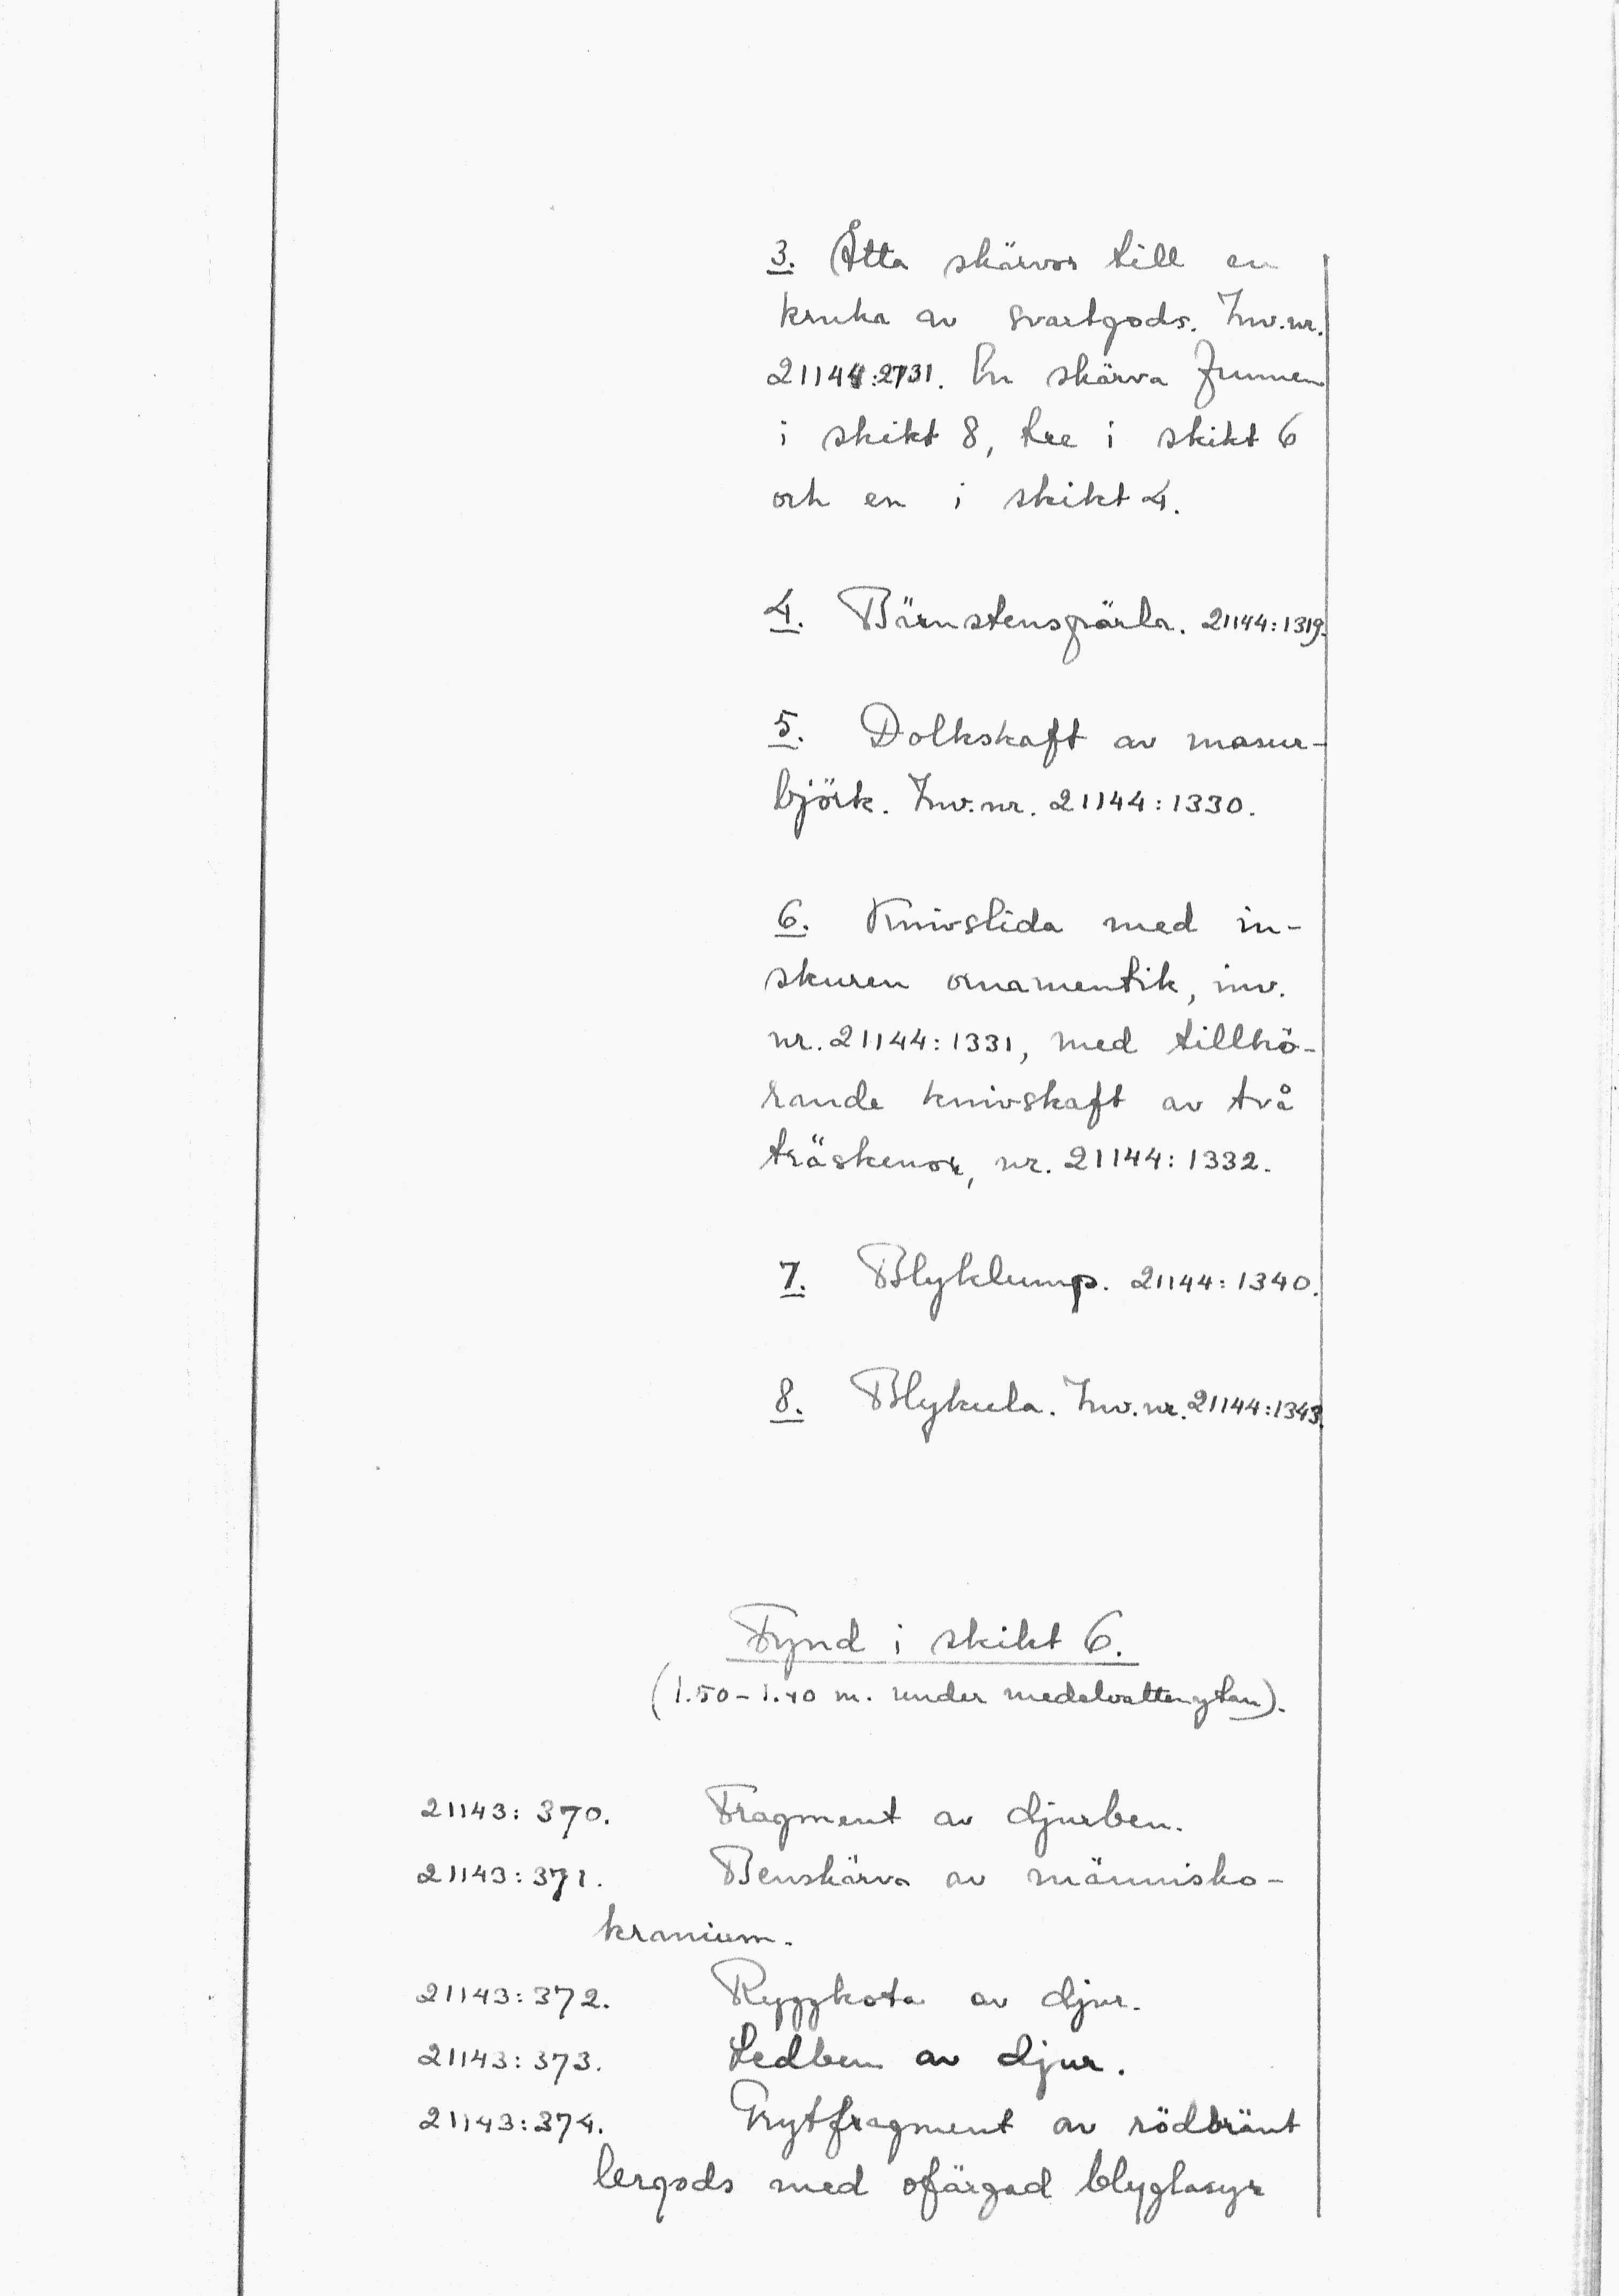 3. Åtta skärvor till en
kruka av svartgods. Inv.nr.
21144:2731. En skärva funnen
i skikt 8, tre i skikt 6
och en i skikt 4.
4. Bärnstenspärla. 21144:1319.
5. Dolkskaft av masur-
björk. Inv.nr. 21144:1330.
6. Knivslida med in-
skuren ornamentik, inv.
nr. 21144:1331, med tillhö-
rande knivskaft av två
träskenor, nr. 21144:1332.
7. Blyklump. 21144:1340.
8. Blykula. Inv.nr. 21144:1343.
Fynd i skikt 6.
(1.50-1.40 m. under medelvattenytan).
21143:370. Fragment av djurben.
21143:371. Benskärva av människo-
kranium.
21143:372. Ryggkota av djur.
21143:373. Ledben av djur.
21143:374. Grytfragment av rödbränt
lergods med ofärgad blyglasyr